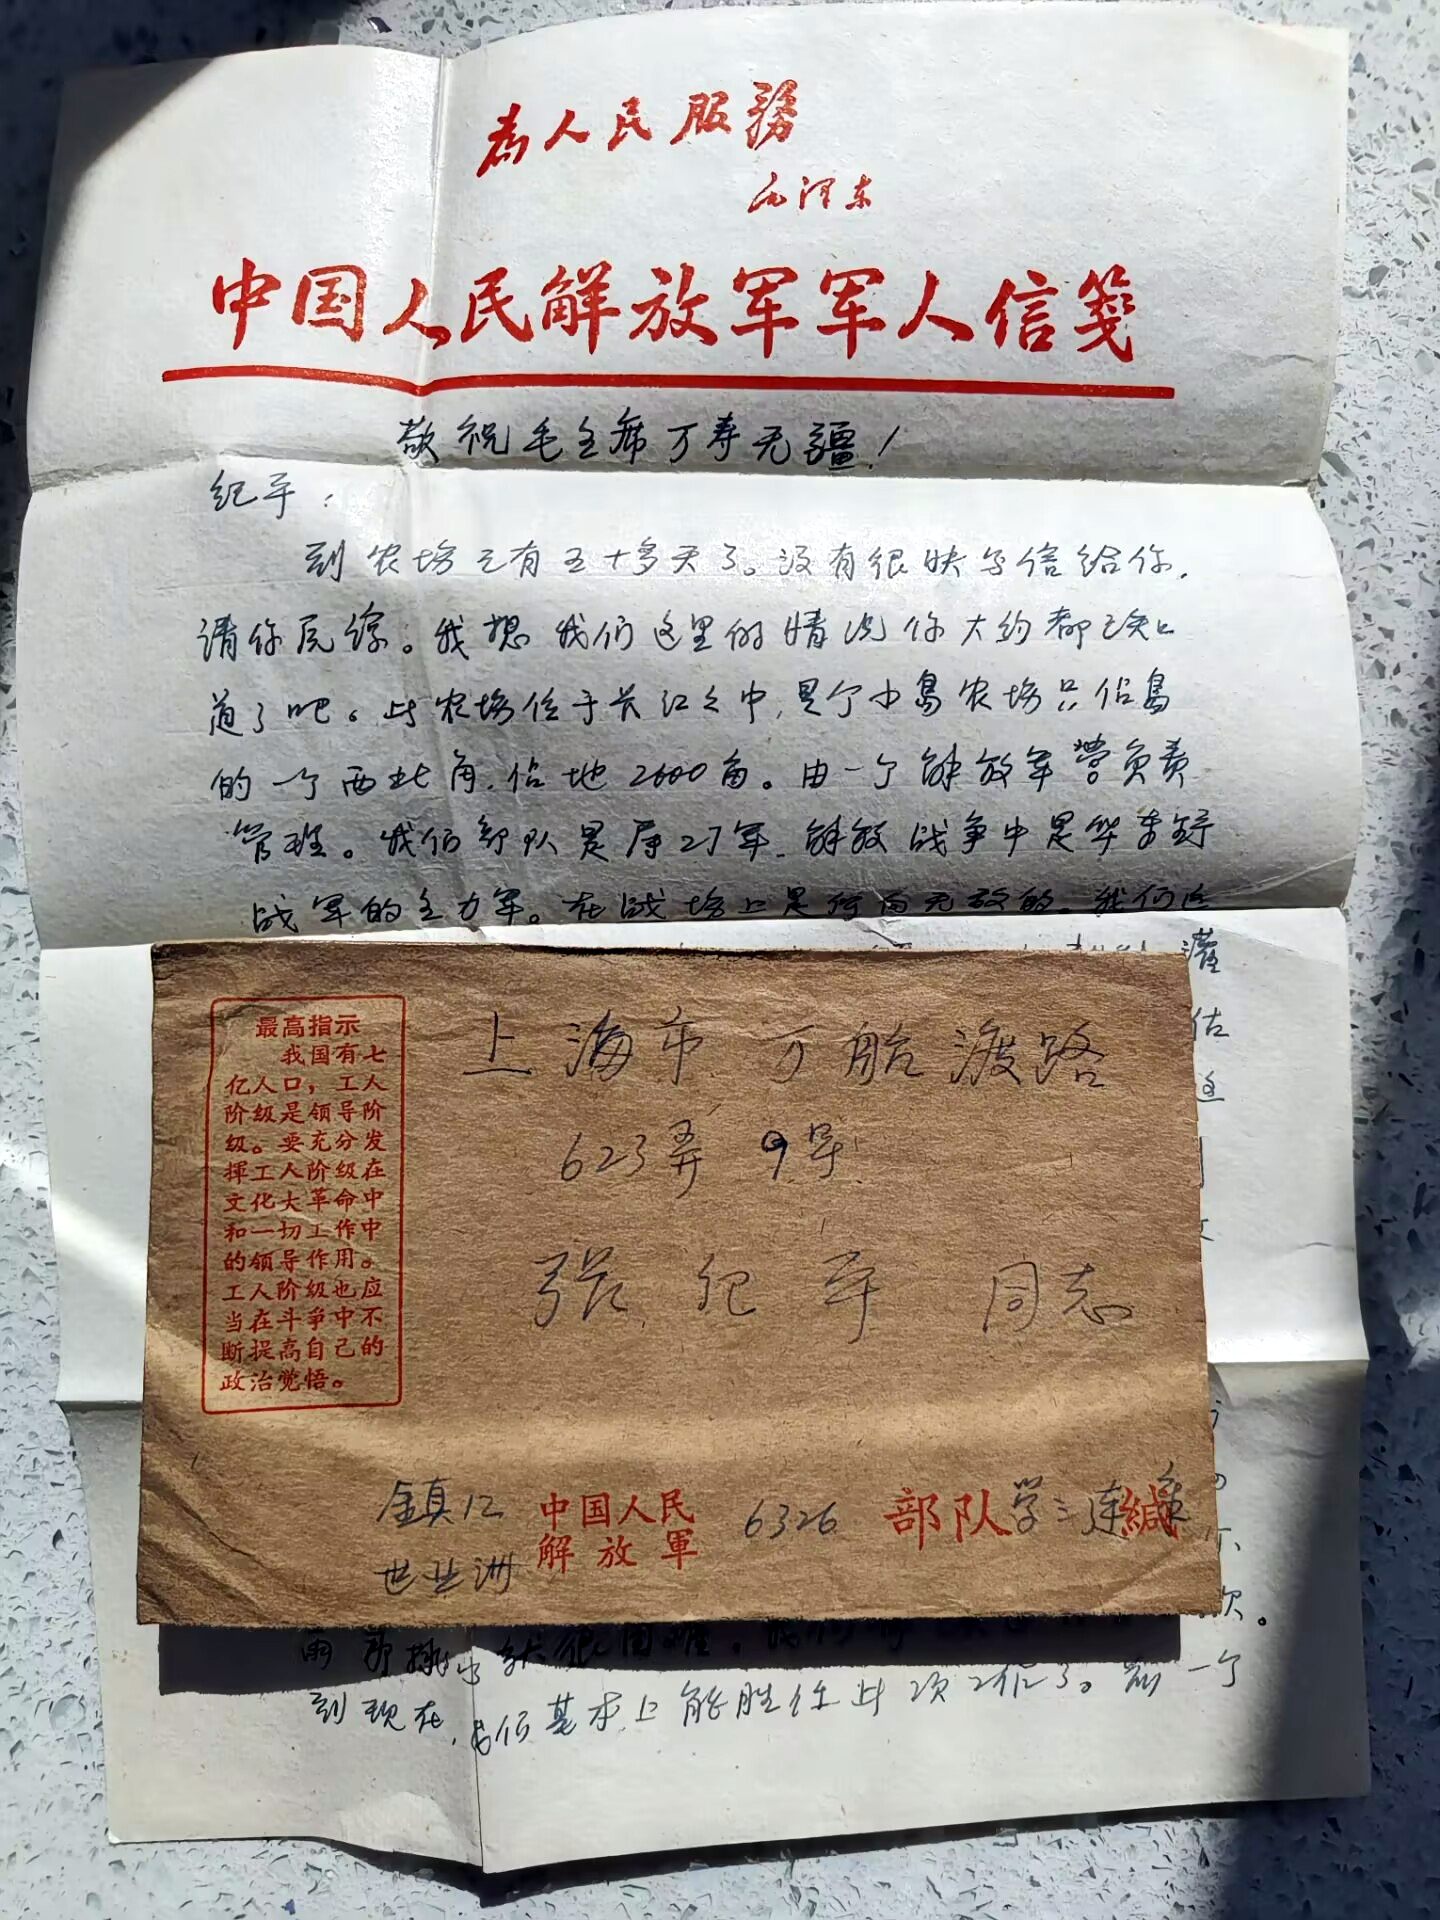 为人民服務
毛泽东
中国人民解放军军人信箋
敬祝毛主席万寿无疆！
纪平：
到农场已有五十多天了。没有很快写信给你，
请你原谅。我想我们这里的情况你大约都已知
道了吧。此农场位于长江之中，是个小岛农场只佔岛
的一个西北角，佔地2600亩。由一个解放军营负责
管理。我们部队是属27军，解放战争中是华东野
战军的主力军。在战场上是所向无敌的。我们
灌
估
这
最高指示
我国有七
亿人口，工人
阶级是领导阶
级。要充分发
挥工人阶级在
文化大革命中
和一切工作中
的领导作用。
工人阶级也应
当在斗争中不
断提高自己的
政治觉悟。
上海市万航渡路
623弄 9号
张纪平 同志
鎮江
世业洲
中国人民
解放軍
6326 部队学三连 緘
两 就很困难。我们 次。
到现在，我们基本上能胜任此项工作了。前一个